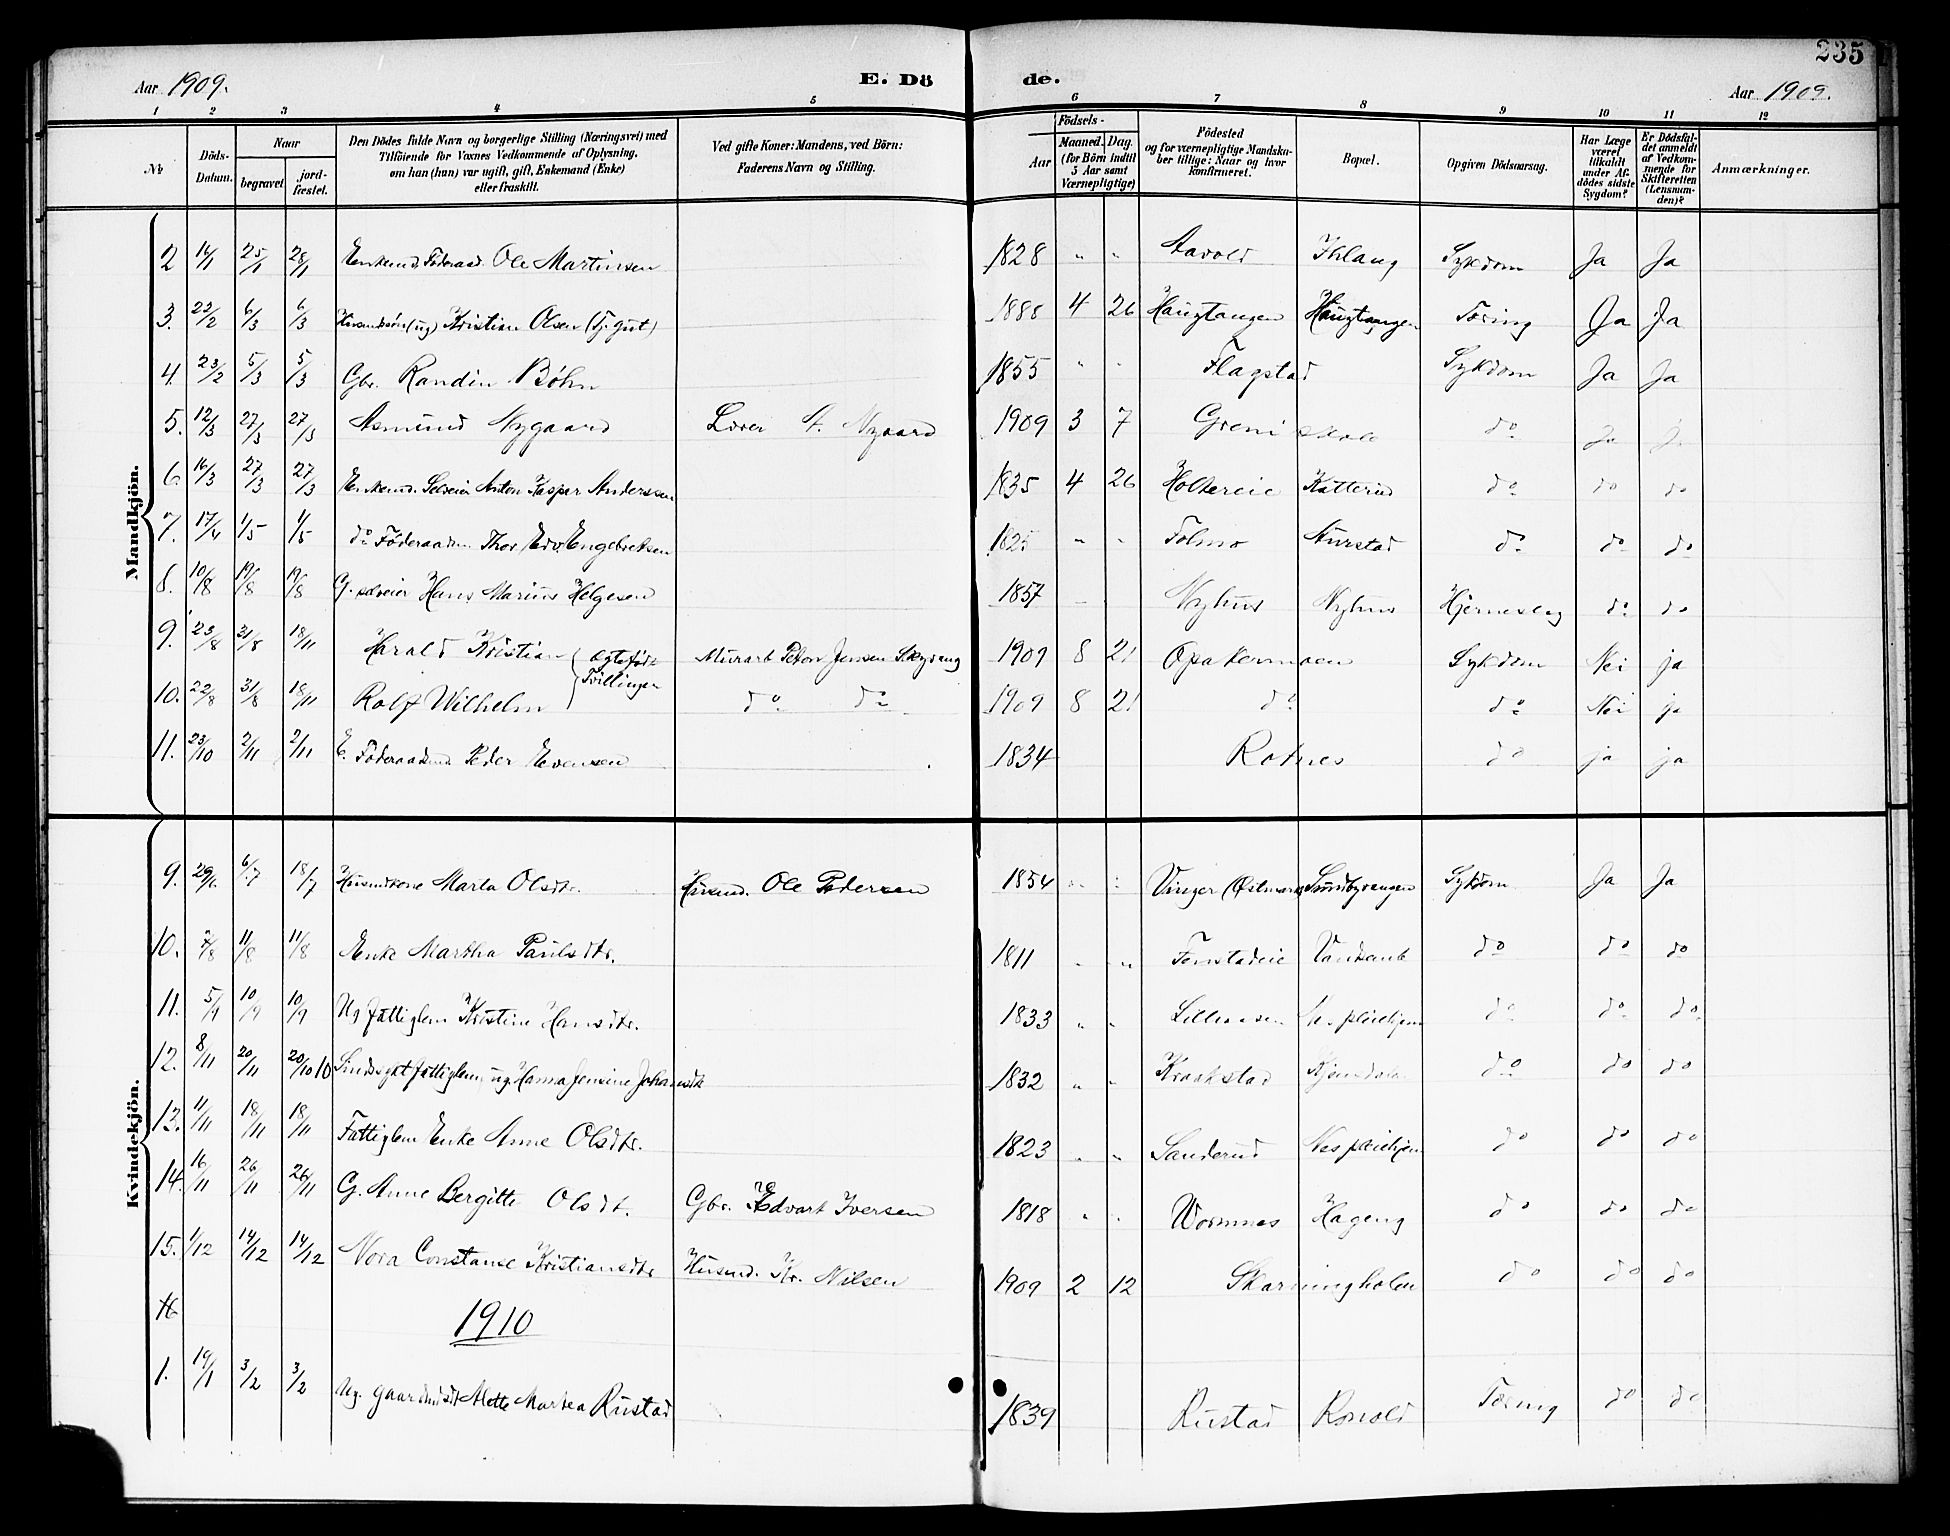 235
Aar 1909.
E. Dö de.
Aar 1909.
1 2 3 4 5 6 7 8 9 10 11 12
No.
Döds-Datum.
Naar
begravet.
jord-fæstet.
Den Dödes fulde Navn og borgerlige Stilling (Næringsvei) med
Tilföiende for Voxnes Vedkommende af Oplysning,
om han (hun) var ugift, gift, Enkemand (Enke)
eller fraskilt.
Ved gifte Koner: Mandens, ved Börn:
Faderens Navn og Stilling.
Födsels-
Aar
Maaned. Dag.
(for Börn indtil
5 Aar samt
Værnepligtige)
Födested
og for værnepligtige Mandska-
ber tillige: Naar og hvor
konfirmeret.
Bopæl.
Opgiven Dödsaarsag.
Har Læge
været
tilkaldt
under Af-
dödes sidste
Sygdom?
Er Dödsfal-
det anmeldt
af Vedkom-
mende for
Skifteretten
(Lensman-
den)?
Anmærkninger.
Mandkjön.
2 14/1 25/1 28/1 Enkemd. Föderaad. Ole Martinsen 1828 " " Aavold Ihlang Sykdom Ja Ja
3. 22/2 6/3 6/3 (ug) Kristian Olsen (Tj. gut) 1888 4 26 Haugtangen Haugtangen Tæring Ja Ja
4. 23/2 5/3 5/3 Gbr. Randin Bøhn 1855 " " Flagstad Sykdom Ja Ja
5. 12/3 27/3 27/3 Asmund Nygaard Lærer A. Nygaard 1909 3 7 Greni skole do Ja Ja
6. 16/3 27/3 27/3 Enkemd. Selveier Anton Kaspar Anderssen 1835 4 26 Holtereie Katterud do do do
7. 17/4 1/5 1/5 do Föderaadsm. Thor Edv. Engebretsen 1825 " " Folmo Aurstad do do do
8. 10/8 19/8 19/8 G. selveier Hans Marius Helgesen 1857 Nyhus Nyhus Hjerneslag do do
9. 23/8 31/8 18/11 Harald Kristian (ægtefødte Murarb. Peton Jensen Skyvang 1909 8 21 Opakermoen Sykdom Nei ja
Tvillinger
10. 22/8 31/8 18/11 Rolf Wilhelm do do 1909 8 21 do do Nei ja
11. 23/10 2/11 2/11 E. Föderaadsmd. Peder Evensen 1834 Rotnes do ja ja
Kvindekjön.
9. 29/6 6/7 18/7 Husmdkone Marta Olsdtr. Husmd. Ole Pedersen 1854 " " Vinger (Østmark) Sundbyvangen Sykdom Ja Ja
10. 2/8 11/8 11/8 Enke Martha Paulsdtr. 1811 " " Fonstadeie do do do
11. 5/9 10/9 10/9 Ug fattiglem Kristine Hansdtr. 1833 " " do do do
12. 8/11 20/11 20/10 10 Sindssykt fattiglem, ug. Hanna Jensine Johansdt 1832 " " Kraakstad do do do
13. 11/11 18/11 18/11 Fattiglem Enke Anne Olsdtr. 1823 " " Sanderud Nes pleiehjem do do do
14. 16/11 26/11 26/11 G. Anne Bergitte Olsdt. Gbr. Edvart Iversen 1818 " " Wormnes Hageng do do do
15. 1/12 14/12 14/12 Nora Constanse Kristiansdtr Husmd. Kr. Nilsen 1909 2 12 Skarningholen do do do
16
1910
1. 19/1 3/2 3/2 Ug. gaardmdsdt Mette Martea Rustad 1839 Rustad Tæring do do